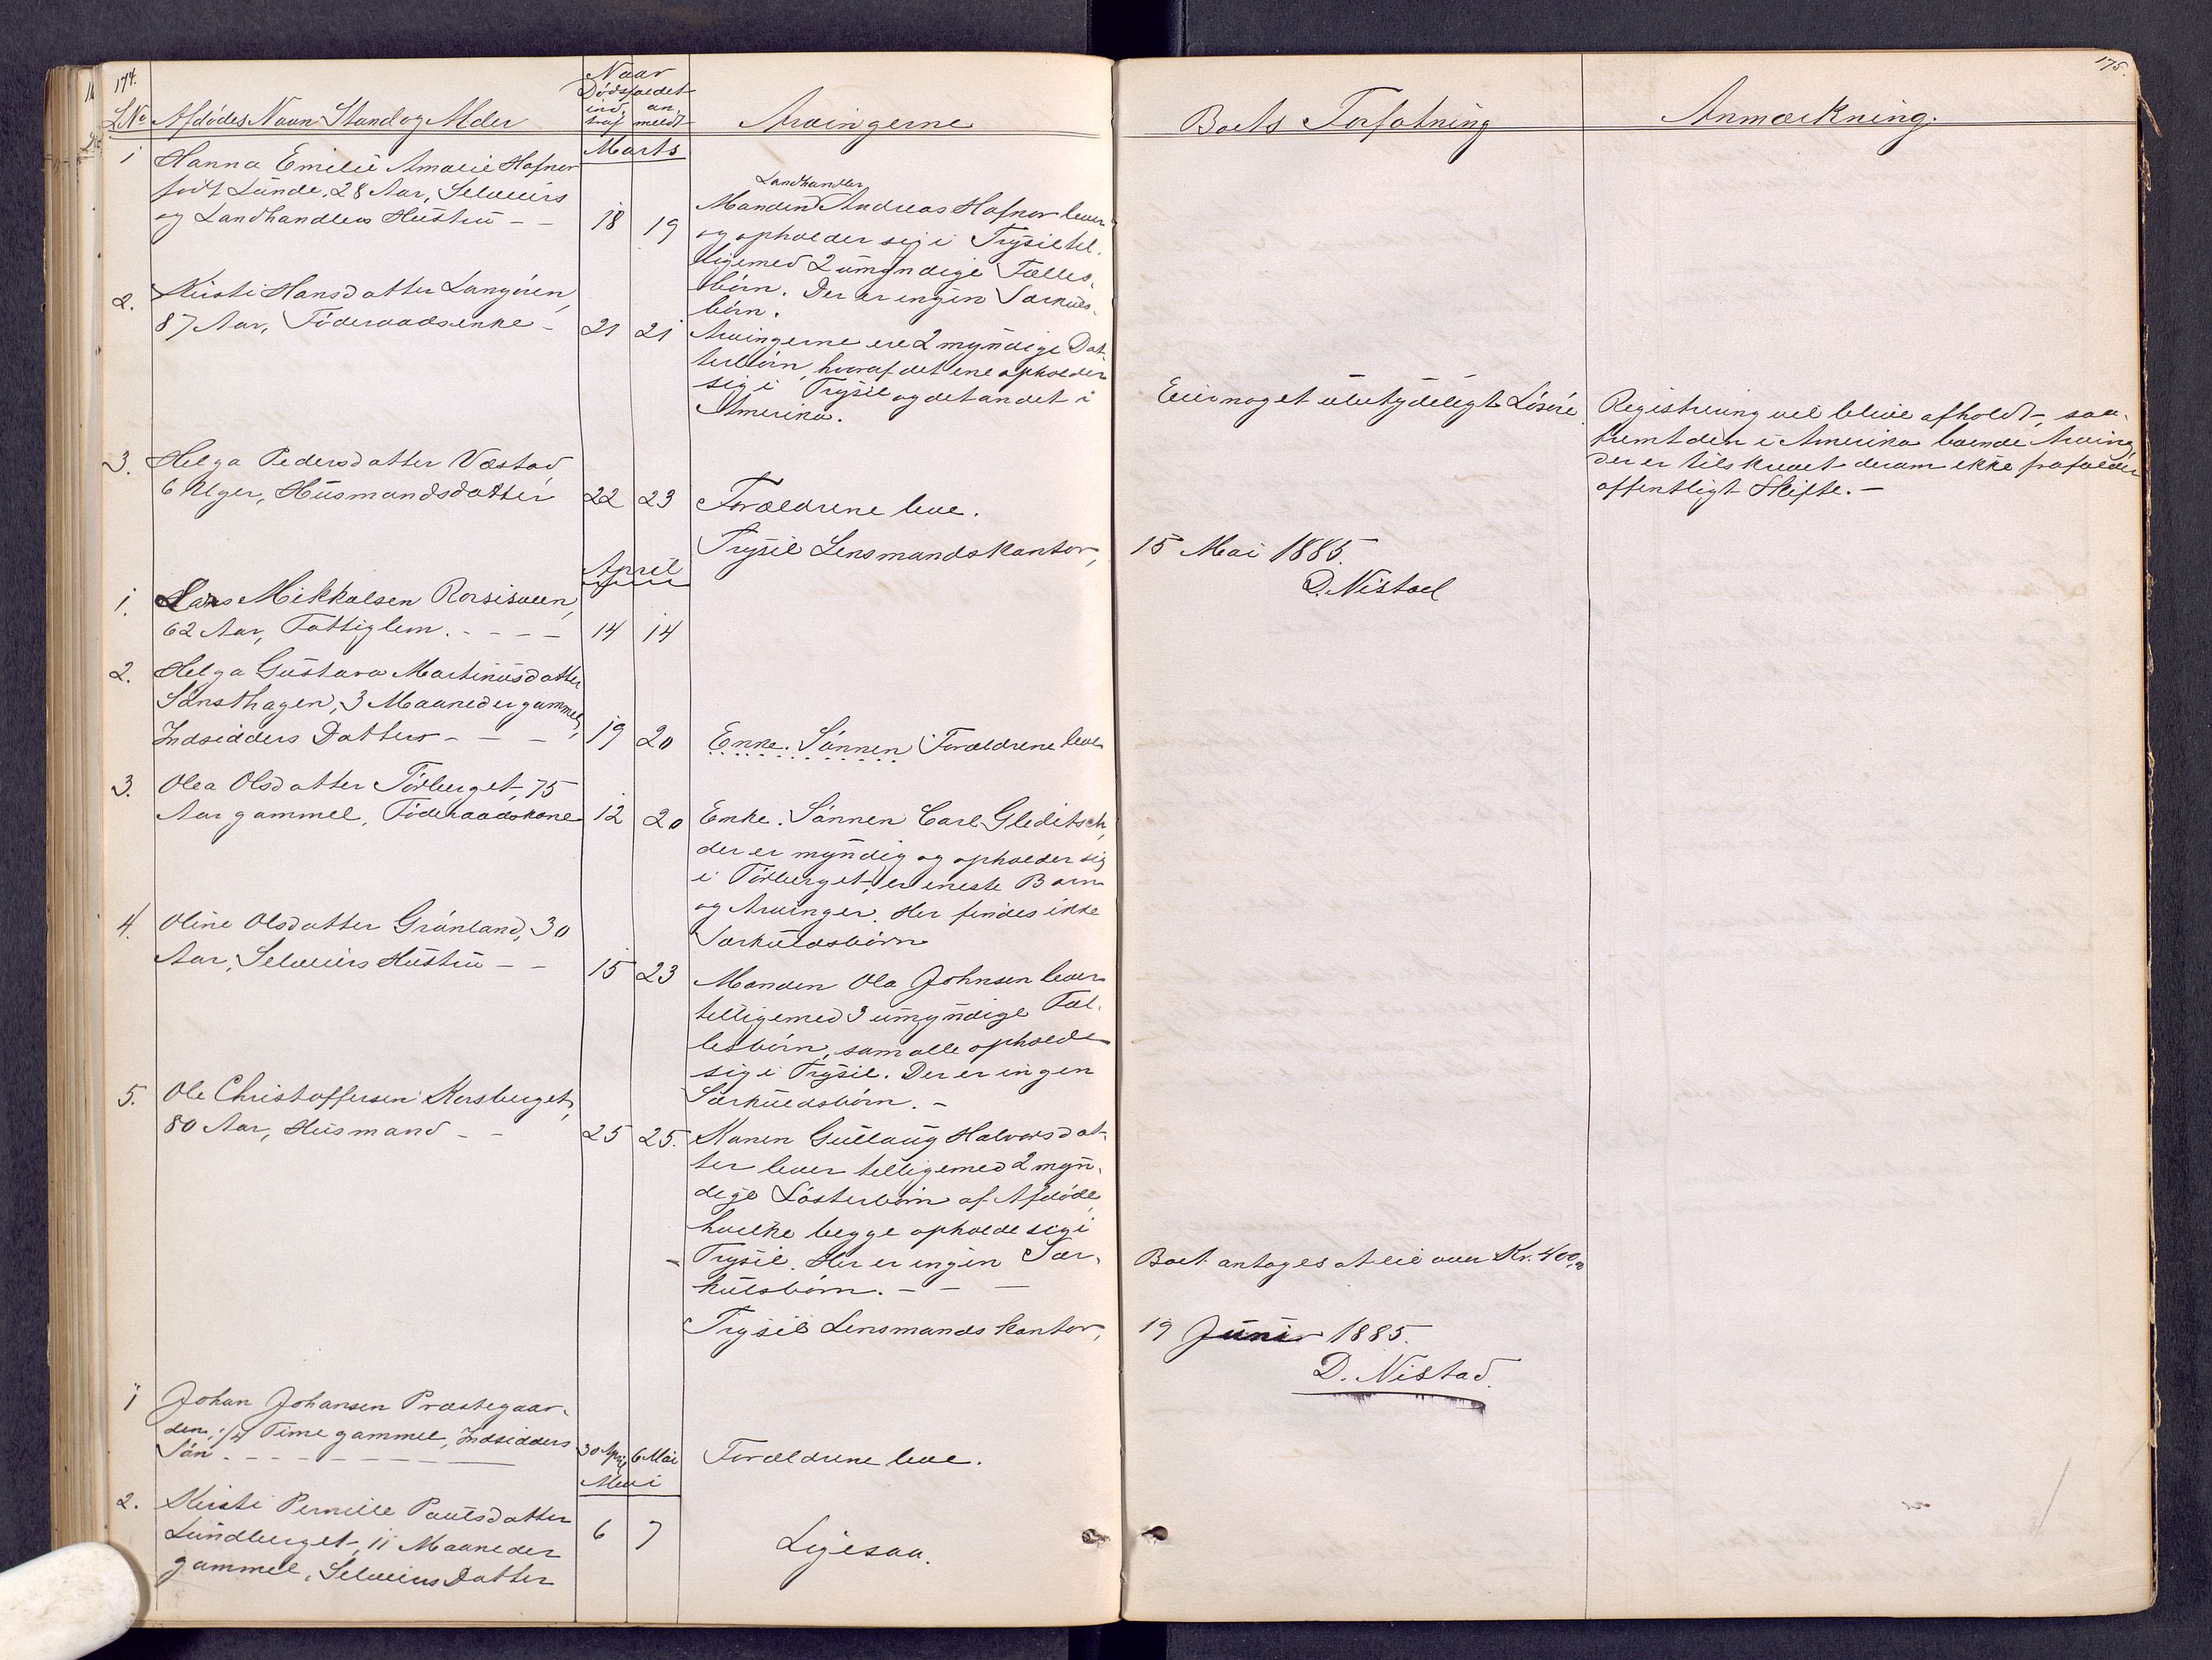 174.
Naar
Dødsfaldet
LNo Afdødes Navn Stand og Alder
ind-
traf
an-
meldt
Arvingerne
Marts
1 Hanna Emilie Amalie Hafnor
født Lunde, 28 Aar, Selveiers
og Landhandlers Hustru - - 18 19
Landhandler
Manden Andreas Hafnor lever
og opholder sig i Trysil til-
ligemed 2 umyndige Fælles-
børn. Der er ingen Særkuds-
børn.
2. Kirsti Hansdatter Langören,
87 Aar, Föderaadsenke - 21 21
Arvingerne ere 2 myndige Dat-
terbörn, hvoraf det ene opholder
sig i Trysil og det andet i
Amerika.
3. Helga Pedersdatter Væstad
6 Uger, Husmandsdatter 22 23
Forældrene leve.
Trysil Lensmandskontor,
April
1. Lars Mikkelsen Rorsisveen,
62 Aar, Fattiglem. - - - - 14 14
2. Helga Gustava Martinusdatter
Sønsthagen, 3 Maaneder gammel,
Indsidders Datter - - - 19 20
Enke. Sønnen Forældrene leve
3. Olea Olsdatter Törberget, 75
Aar gammel, Föderaadskone 12 20
Enke. Sønnen Carl Gleditsch,
der er myndig og opholder sig
i Törberget, er eneste Barn
og Arvinger. Her findes ikke
Særkuldsbörn
4. Oline Olsdatter Grönland, 30
Aar, Selveiers Hustru - - 15 23
Manden Ola Johnsen lever
tilligemed 3 umyndige Fæl-
lesbörn, som alle opholde
sig i Trysil. Der er ingen
Særkuldsbörn. -
5. Ole Christoffersen Korsberget,
80 Aar, Husmand - - 25 25.
Konen Gullaug Halvorsdat-
ter lever tilligemed 2 myn-
dige Lösterbörn af Afdöde,
hvilke begge opholde sig i
- Trysil. Her er ingen Sær-
kulsbörn. - - -
Trysil Lensmandskontor,
1 Johan Johansen Præstegaar-
den, 1/4 Time gammel, Indsidders
Sön - - - - - - - 30 April 6 Mai
Forældrene leve.
Mai
2. Kirsti Pernille Paulsdatter
Lundberget, 11 Maaneder
gammel, Selveiers Datter
6 7
Ligesaa.
175.
Boets Forfatning
Anmærkning.
Eier noget ubetydeligt Lösöre.
Registrering vil blive afholdt, saa-
fremt den i Amerika boende Arving,
der er tilskrevet derom ikke frafalder
offentligt Skifte. -
15 Mai 1885.
D. Nistad
Boet antages at eie over Kr. 400,00
19 Juni 1885.
D. Nistad.